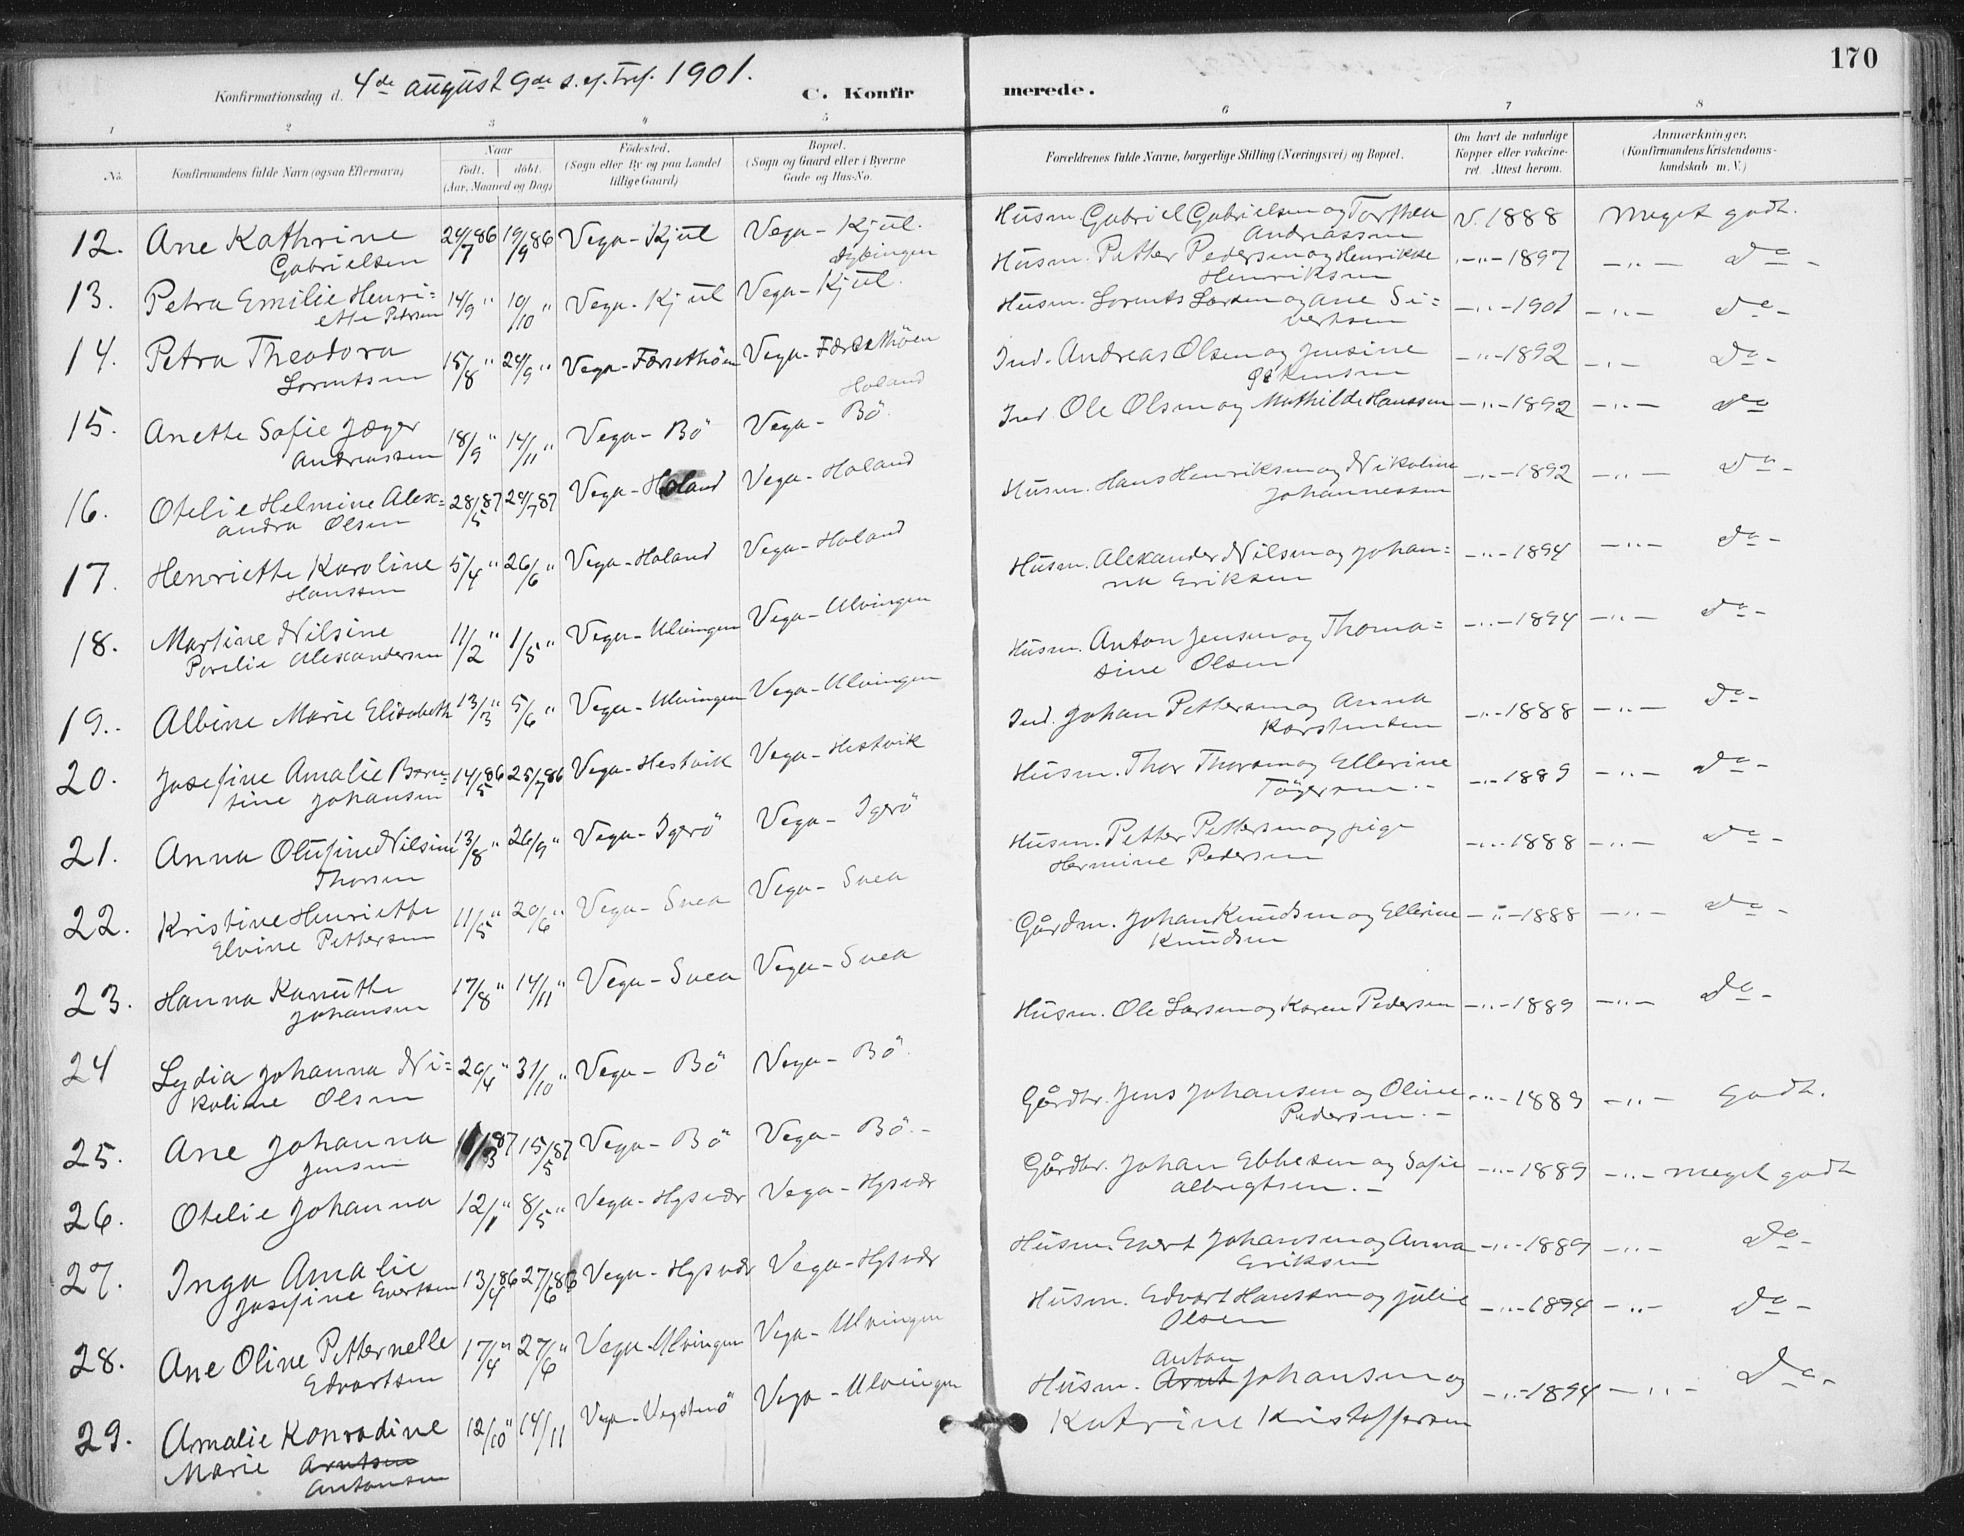 170
Konfirmationsdag d. 4de august 9de s. ef. Tref. 1901.
C. Konfirmerede.
1 2 3 4 5 6 7 8
No. Konfirmandens fulde Navn (ogsaa Efternavn)
Naar født. døbt. (Aar, Maaned og Dag)
Fødested. (Sogn eller By og paa Landet tillige Gaard)
Bopæl. (Sogn og Gaard eller i Byerne Gade og Hus-No.
Forældrenes fulde Navne, borgerlige Stilling (Næringsvei) og Bopæl.
Om havt de naturlige Kopper eller vakcineret. Attest herom.
Anmærkninger. (Konfirmandens Kristendomskundskab m. V.)
12. Ane Kathrine 24/7 86 19/9 86 Vega - Kjul Vega - Kjul. Husm. Gabriel Gabrielsen og Torthea V. 1888 Meget godt.
Gabrielsen Andreassen
13. Petra Emilie Henri= 14/9 " 10/10 " Vega - Kjul Vega - Kjul. Husm. Petter Pedersen og Henrikke -"- 1897 -"- Do -
ette Petersen Henriksen
14. Petra Theodora 15/8 " 24/9 " Vega - Færsethøen Vega - Færsethøen Husm. Lorents Larsen og Ane Si= -"- 1901 -"- Do -
Lorentsen vertsen
15. Anette Sofie Jæger 18/9 " 14/11 " Vega - Bö Vega - Bö. Ind. Andreas Olsen og Jensine -"- 1892 -"- Do -
Andreassen
Holand
16. Otelie Helmine Alex= 28/5 87 24/7 87 Vega - Holand Vega - Holand Ind. Ole Olsen og Mathilde Hanssen -"- 1892 -"- Do
andra Olsen
17. Henriette Karoline 5/4 " 26/6 " Vega - Holand Vega - Holand Husm. Hans Henriksen og Nikoline -"- 1892 -"- Do -
Hanssen Johannessen
18. Martine Nilsine 11/2 " 1/5 " Vega - Ulvingen Vega - Ulvingen Husm. Alexander Nilsen og Johan= -"- 1894 -"- Do -
Alexandersen na Eriksen
19. Albine Marie Elisabeth 13/3 " 5/6 " Vega - Ulvingen Vega - Ulvingen Husm. Anton Jensen og Thoma= -"- 1894 -"- Do -
sine Olsen
20. Josefine Amalie Bern= 14/5 86 25/7 86 Vega - Hestvik Vega - Hestvik Ind. Johan Pettersen og Anna -"- 1888 -"- Do -
tine Johansen Karstensen
21. Anna Olufine Nilsine 13/8 " 26/9 " Vega - Igerö Vega - Igerö Husm. Thor Thorsen og Ellerine -"- 1889 -"- Do -
Thorsen
22. Kristine Henriette 11/5 " 20/6 " Vega - Svea Vega - Svea Husm. Petter Pettersen og pige -"- 1888 -"- Do -
Elvine Pettersen Hermine Pedersen
23. Hanna Kanutte 17/8 " 14/11 " Vega - Svea Vega - Svea Gårdm. Johan Knudsen og Ellerine -"- 1888 -"- Do -
Johansen Knudsen
24 Lydia Johanna Ni= 20/4 " 31/10 " Vega - Bö Vega - Bö. Husm. Ole Larsen og Karen Pedersen -"- 1889 -"- Do -
koline Olsen
25. Ane Johanna 87 15/5 87 Vega - Bö Vega - Bö. - Gårdbr. Jens Johansen og Oline -"- 1889 -"- Godt.
Jensen Pedersen. -
26. Otelie Johanna 12/1 " 8/5 " Vega - Hysvær Vega - Hysvær Gårdbr. Johan Ebbesen og Sofie -"- 1889 -"- meget godt
Albrigtsen. -
27. Inga Amalie 13/4 86 27/6 86 Vega - Hysvær Vega - Hysvær Husm. Evert Johansen og Anna -"- 1889 -"- Do -
Josefine Evertsen Eriksen
28. Ane Oline Petternelle 17/4 " 27/6 " Vega - Ulvingen Vega - Ulvingen Husm. Edvart Hanssen og Julie -"- 1894 -"- Do -
Edvartsen Olsen
29. Amalie Konradine 12/10 " 14/11 Vega - Vegstenö Vega - Ulvingen Husm. Arnt Anton Johansen og -"- 1894 -"- Do -
Marie Arntsen Katrine Kristoffersen
Antonsen